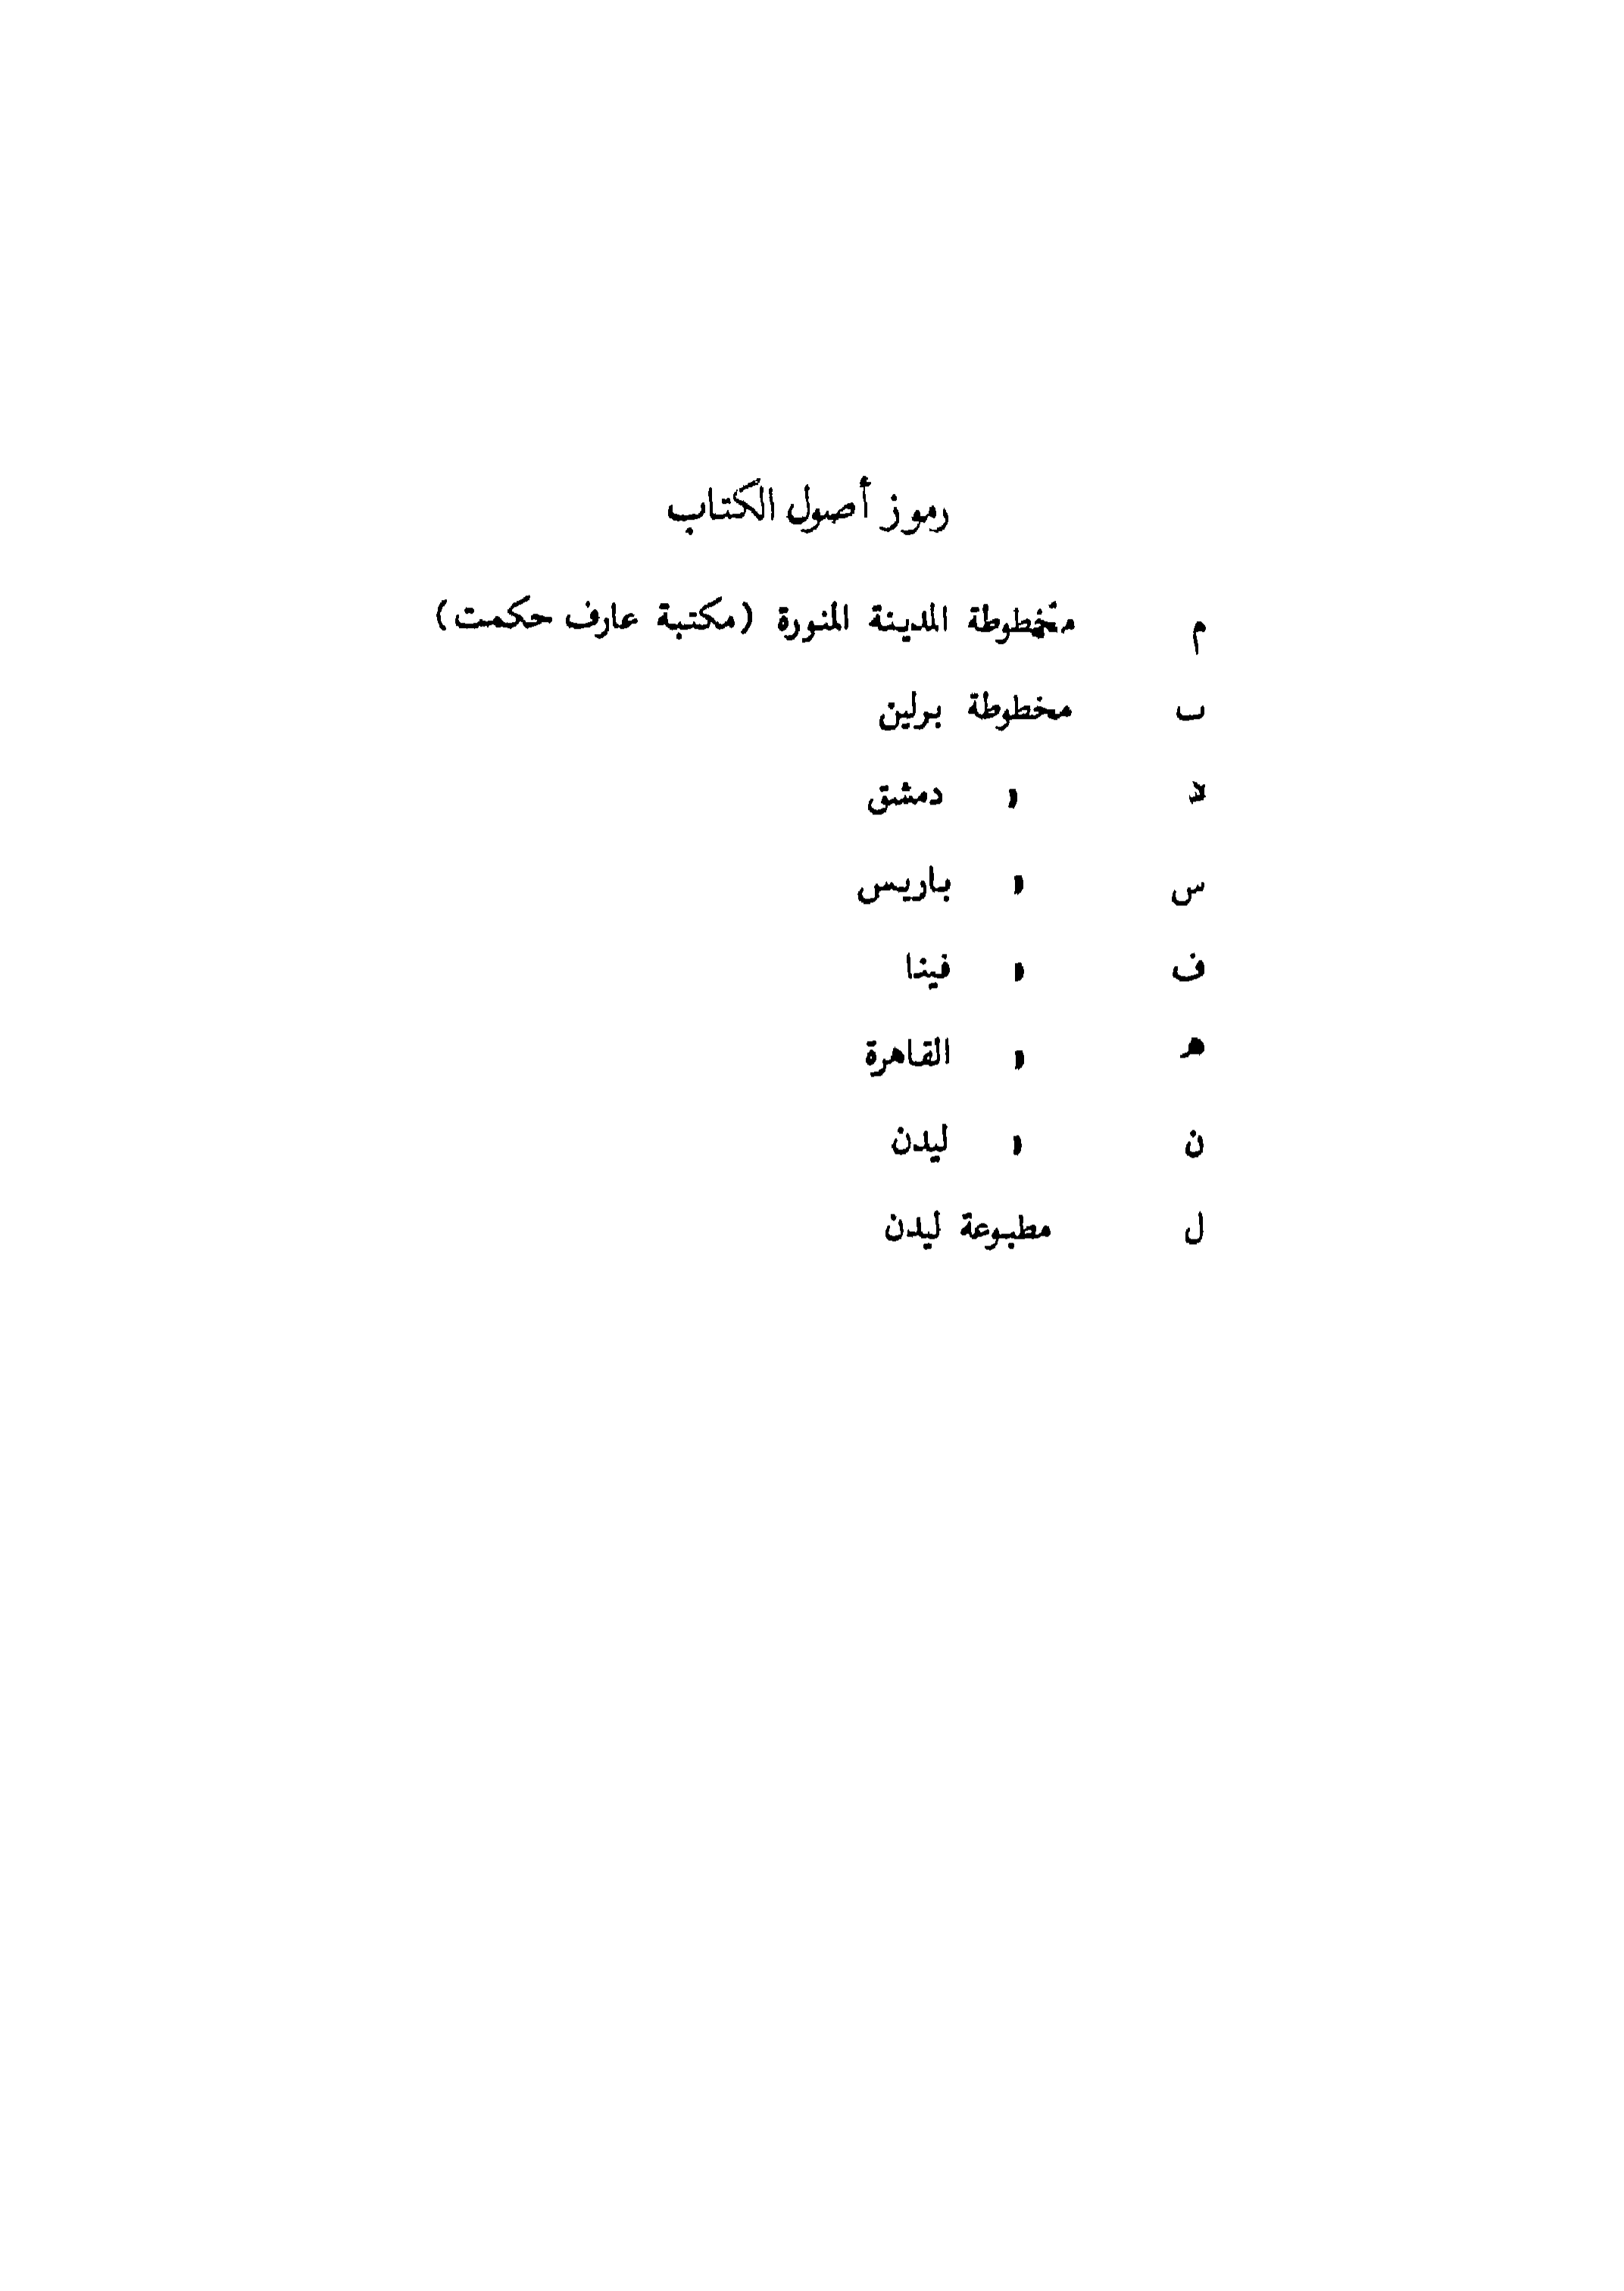 رموز أصول الكتاب
م مخطوطة المدينة المنورة (مكتبة عارف حكمت)
ب مخطوطة برلين
« دمشق
س « باريس
ف « فينا
هـ « القاهرة
ن « ليدن
ل مطبوعة ليدن